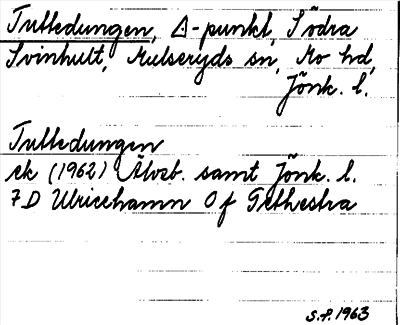 Tutledungen, Δ-punkt, Södra
Svinhult, Mulseryds sn, Mo hd,
Jönk. l.
Tutledungen
ek (1962) Älvsb. samt Jönk. l.
7D Ulricehamn Of Grthestra
S.F. 1963